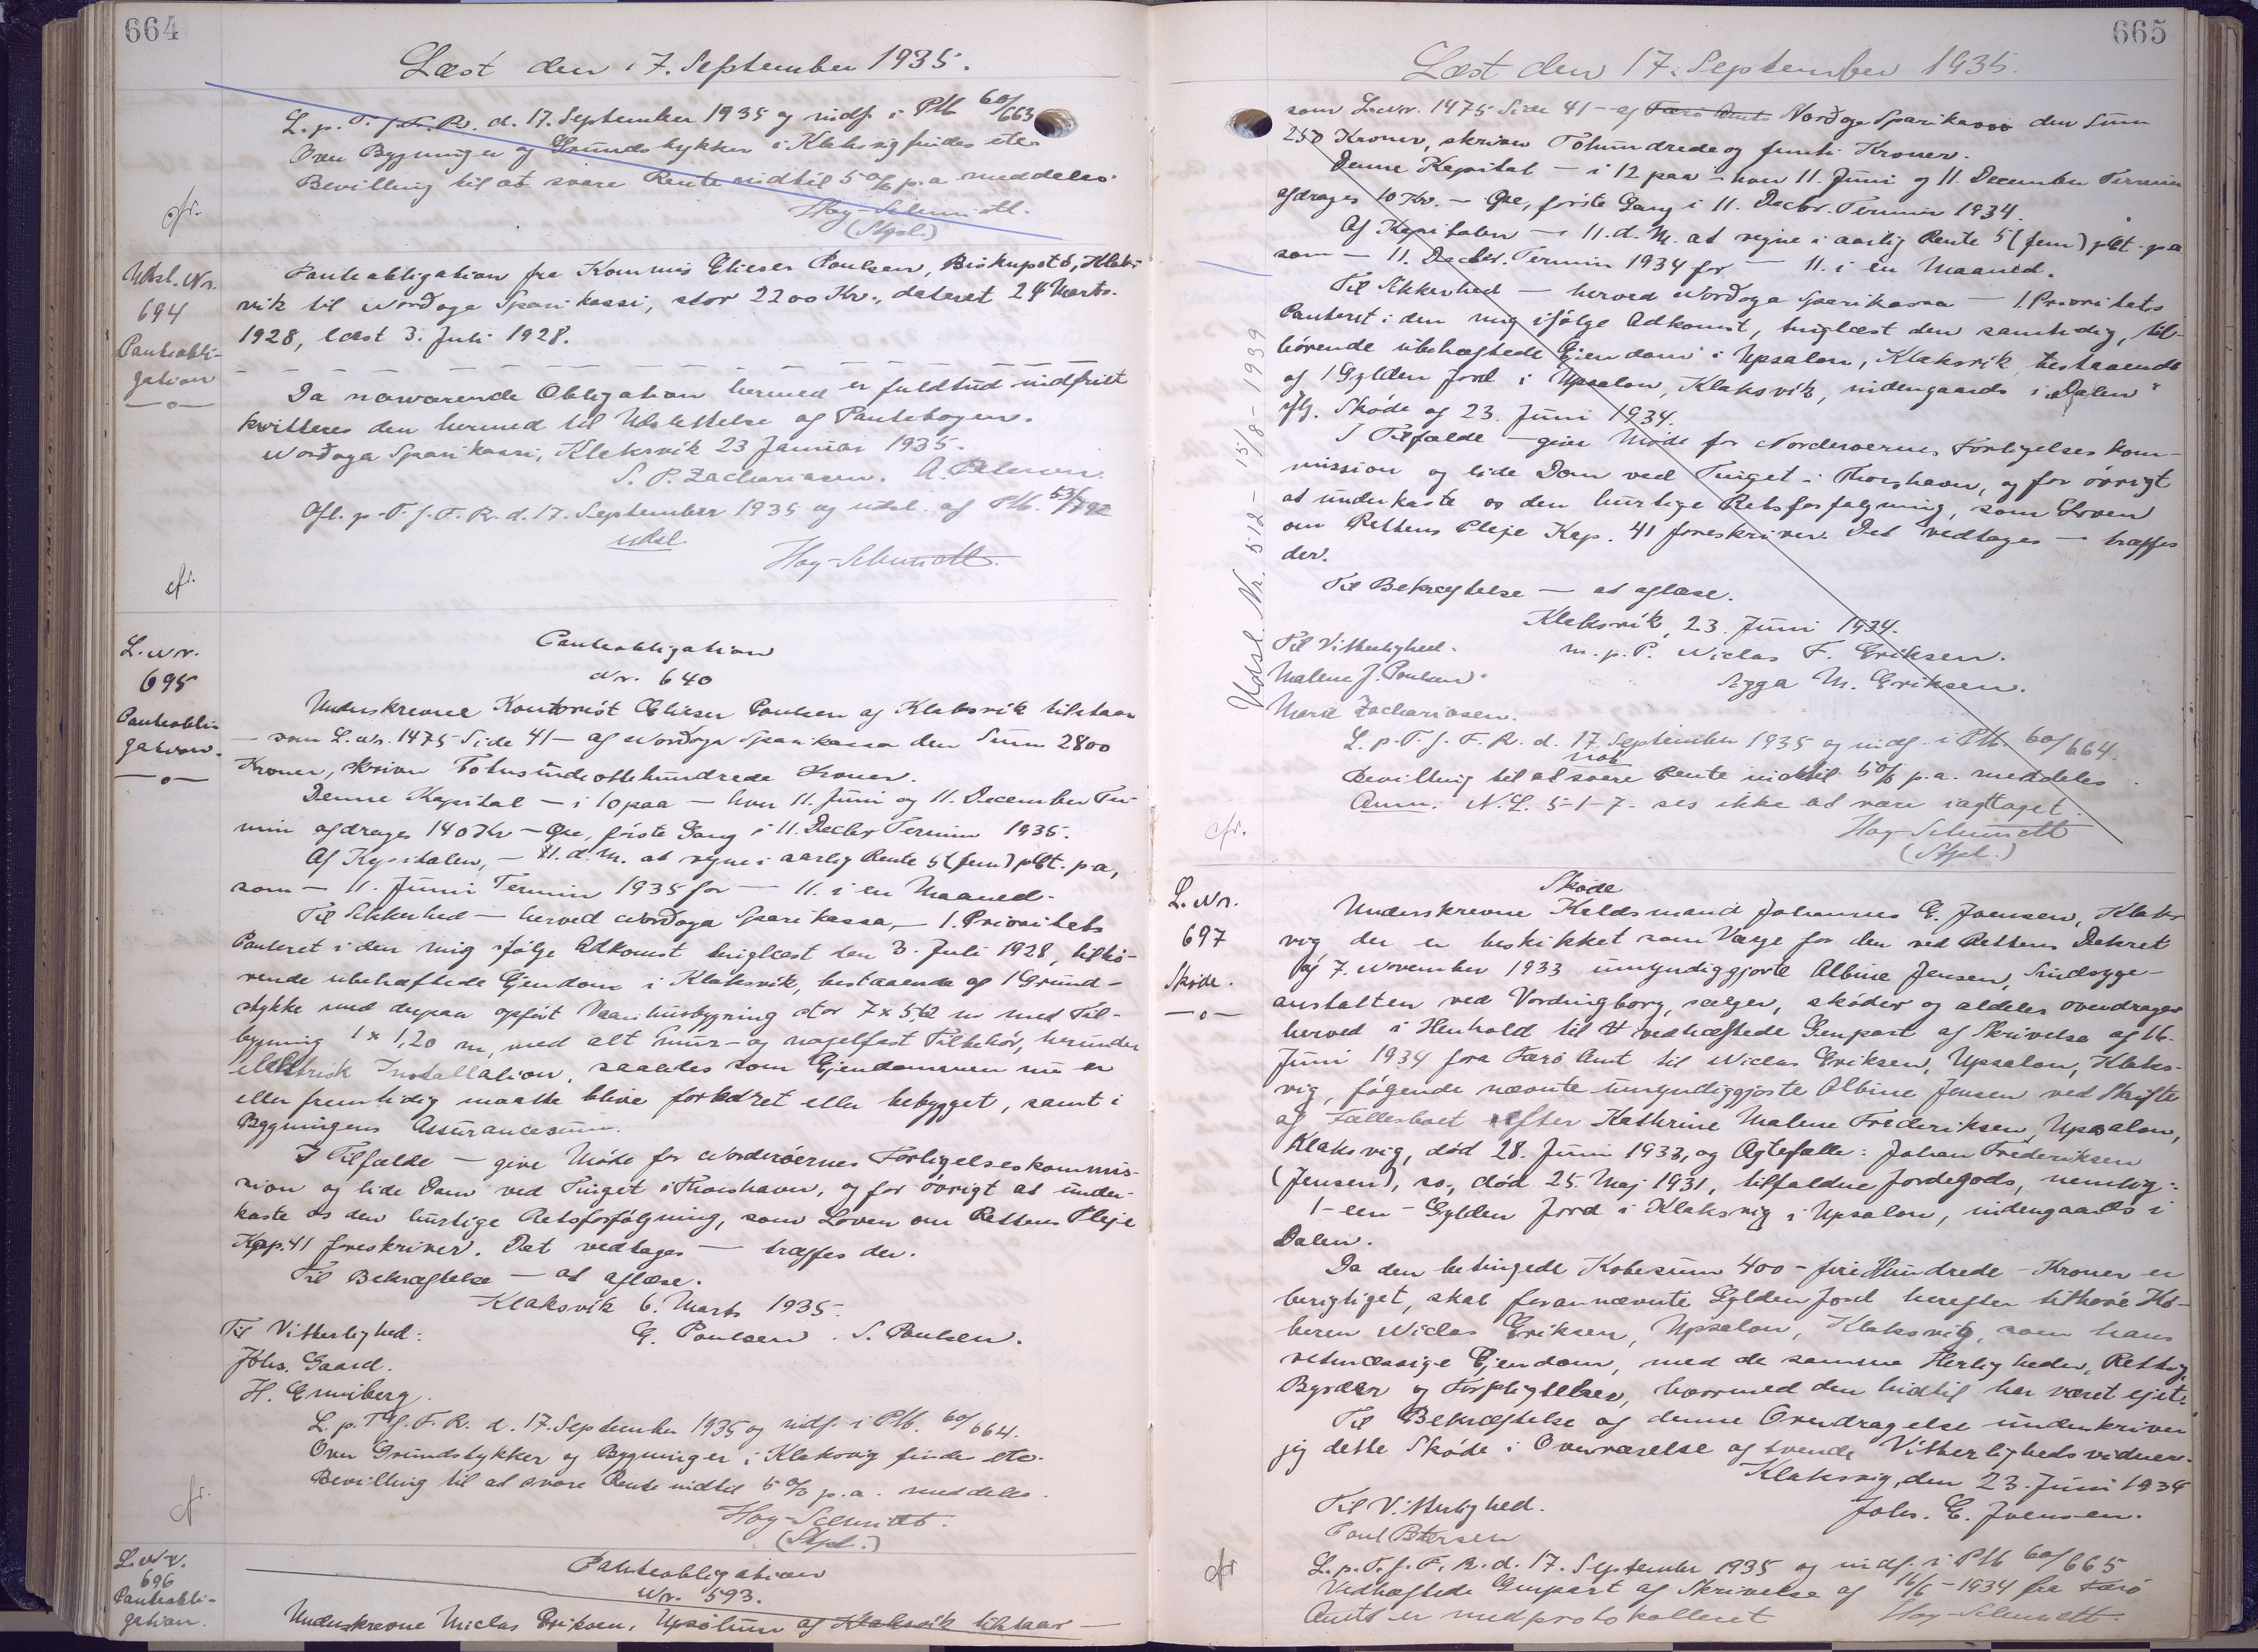 664
Læst den 17. September 1935.
L. p. T. f. F. R. d. 17. September 1935 og indf. i Ptb 60/663
Over Bygninger og Grundstykker i Klaksvig findes etc.
Bevilling til at svare Rente indtil 5 % p.a. meddeles.
Hoy-Schmidt.
(Stpl.)
cfr.
Udsl. Nr.
694
Panteobli-
gation
Panteobligation fra Kommis Elieser Poulsen, Biskupstø, Klaks-
vik til Norðoya Sparikassi, stor 2200 Kr., dateret 24 Marts.
1928, læst 3. Juli 1928.
Da nærværende Obligation hermed er fuldtud indfriet
kvitteres den hermed til Udslettelse af Pantebogen.
Norðoya Sparikassi, Klaksvik 23 Januar 1935.
S. P. Zachariasen. A. Petersen.
Afl. p. T. f. F. R. d. 17. September 1935 og udsl. af Ptb. 53/792
udsl.
Hoy-Schmidt.
cf.
L. Nr.
695
Panteobli-
gation.
Panteobligation
Nr. 640
Underskrevne Kontorist Elieser Poulsen af Klaksvik tilstaar
— som L. Nr. 1475 Side 41 — af Norðoya Sparikassa den Sum 2800
Kroner, skriver Totusindeottehundrede Kroner.
Denne Kapital — i 10 paa — hver 11. Juni og 11. December Ter-
min afdrages 140 Kr — Øre, første Gang i 11. Decbr Termin 1935.
Af Kapitalen, — 11. d. M. at regne i aarlig Rente 5 (fem) pCt. p.a,
som — 11. Juni Termin 1935 for — 11. i en Maaned.
Til Sikkerhed — herved Norðoya Sparikassa, — 1. Prioritets
Panteret i den mig ifølge Adkomst tinglæst den 3. Juli 1928, tilhø-
rende ubehæftede Ejendom i Klaksvik, bestaaende af 1 Grund-
stykke med derpaa opført Vaanhusbygning stor 7 x 5½ m med Til-
bygning 1 x 1,20 m, med alt mur- og nagelfast Tilbehør, herunder
elektrisk Installation, saaledes som Ejendommen nu er
eller fremtidig maatte blive forbedret eller bebygget, samt i
Bygningens Assurancesum.
I Tilfælde — give Møde for Norderøernes Forligelseskommis-
sion og lide Dom ved Tinget i Thorshavn, og for øvrigt at under-
kaste os den hurtige Retsforfølgning, som Loven om Rettens Pleje
Kap. 41 foreskriver. Det vedtages — træffes der.
Til Bekræftelse — at aflæse.
Klaksvik 6. Marts 1935.
Til Vitterlighed:
E. Poulsen. S. Poulsen.
Johs. Gaard.
H. Enniberg.
L. p. T. f. F. R. d. 17. September 1935 og indf. i Ptb. 60/664.
Over Grundstykker og Bygninger i Klaksvig findes etc.
Bevilling til at svare Rente indtil 5 % p.a. meddeles.
Hoy-Schmidt.
(Stpl.)
cf.
L. Nr.
696
Panteobli-
gation.
Panteobligation
Nr. 593.
Underskrevne Niclas Eriksen, Upsølum af Klaksvik tilstaar —
665
Læst den 17. September 1935.
som L. Nr. 1475 Side 41 — af Færø Amts Norðoya Sparikassa den Sum
250 Kroner, skriver Tohundredeog femti Kroner.
Denne Kapital — i 12 paa — hver 11. Juni og 11. December Termin
afdrages 10 Kr. — Øre, første Gang i 11. Decbr. Termin 1934.
Af Kapitalen — 11. d. M. at regne i aarlig Rente 5 (fem) pCt. p.a
som — 11. Decbr. Termin 1934 for — 11. i en Maaned.
Til Sikkerhed — herved Norðoya Sparikassa — 1. Prioritets
Panteret i den mig ifølge Adkomst, tinglæst den samtidig, til-
hørende ubehæftede Ejendom i Upsalon, Klaksvik, bestaaende
af 1 Gylden Jord i Upsalon, Klaksvik, indengaards i „Dalen"
iflg. Skøde af 23. Juni 1934.
I Tilfælde — give Møde for Norderøernes Forligelses kom-
mission og lide Dom ved Tinget i Thorshavn, og for øvrigt
at underkaste os den hurtige Retsforfølgning, som Loven
om Rettens Pleje Kap. 41 foreskriver. Det vedtages — træffes
der.
Udsl. Nr. 512 - 15/8 - 1939
Til Bekræftelse — at aflæse.
Klaksvik, 23. Juni 1934.
Til Vitterlighed.
m. p. P. Niclas F. Eriksen.
Malene J. Poulsen.
Sigga M. Eriksen.
Marie Zachariasen.
L. p. T. f. F. R. d. 17. September 1935 og indf. i Ptb. 60/664.
not
Bevilling til at svare Rente indtil 5 % p.a. meddeles.
Anm. N. L. 5-1-7. ses ikke at være iagttaget.
Hoy-Schmidt
(Stpl.)
cfr.
L. Nr.
697
Skøde.
Skøde
Underskrevne Kældsmand Johannes E. Joensen, Klaks-
vig der er beskikket som Værge for den ved Rettens Dekret
af 7. November 1933 umyndiggjorte Albine Jensen, Sindssyge-
anstalten ved Vordingborg, sælger, skøder og aldeles overdrager
herved i Henhold til vedhæftede Genpart af Skrivelse af 16.
Juni 1934 fra Færø Amt til Niclas Eriksen, Upsalon, Klaks-
vig, følgende nævnte umyndiggjorte Albine Jensen ved Skifte
af Fællesboet efter Kathrine Malene Frederiksen, Upsalon,
Klaksvig, død 28. Juni 1933, og Ægtefælle: Johan Frederiksen
(Jensen), so., død 25. Maj 1931, tilfaldne Jordegods, nemlig:
1 - een - Gylden Jord i Klaksvig i Upsalon, indengaards i
Dalen.
Da den betingede Købesum 400 - fire Hundrede - Kroner er
berigtiget, skal forannævnte Gylden Jord herefter tilhøre Kø-
beren Niclas Eriksen, Upsalon, Klaksvig, som hans
retmæssige Ejendom, med de samme Herligheder, Rettig.
Byrder og Forpligtelser, hvormed den hidtil har været ejet.
Til Bekræftelse af denne Overdragelse underskriver
jeg dette Skøde i Overværelse af tvende Vitterlighedsvidner.
Klaksvig, den 23. Juni 1934
Til Vitterlighed.
Johs. E. Joensen.
Poul Petersen
L. p. T. f. F. R. d. 17. September 1935 og indf. i Ptb 60/665
Vedhæftede Genpart af Skrivelse af 16/6 - 1934 fra Færø
Amt er medprotokolleret
Hoy-Schmidt.
cfr